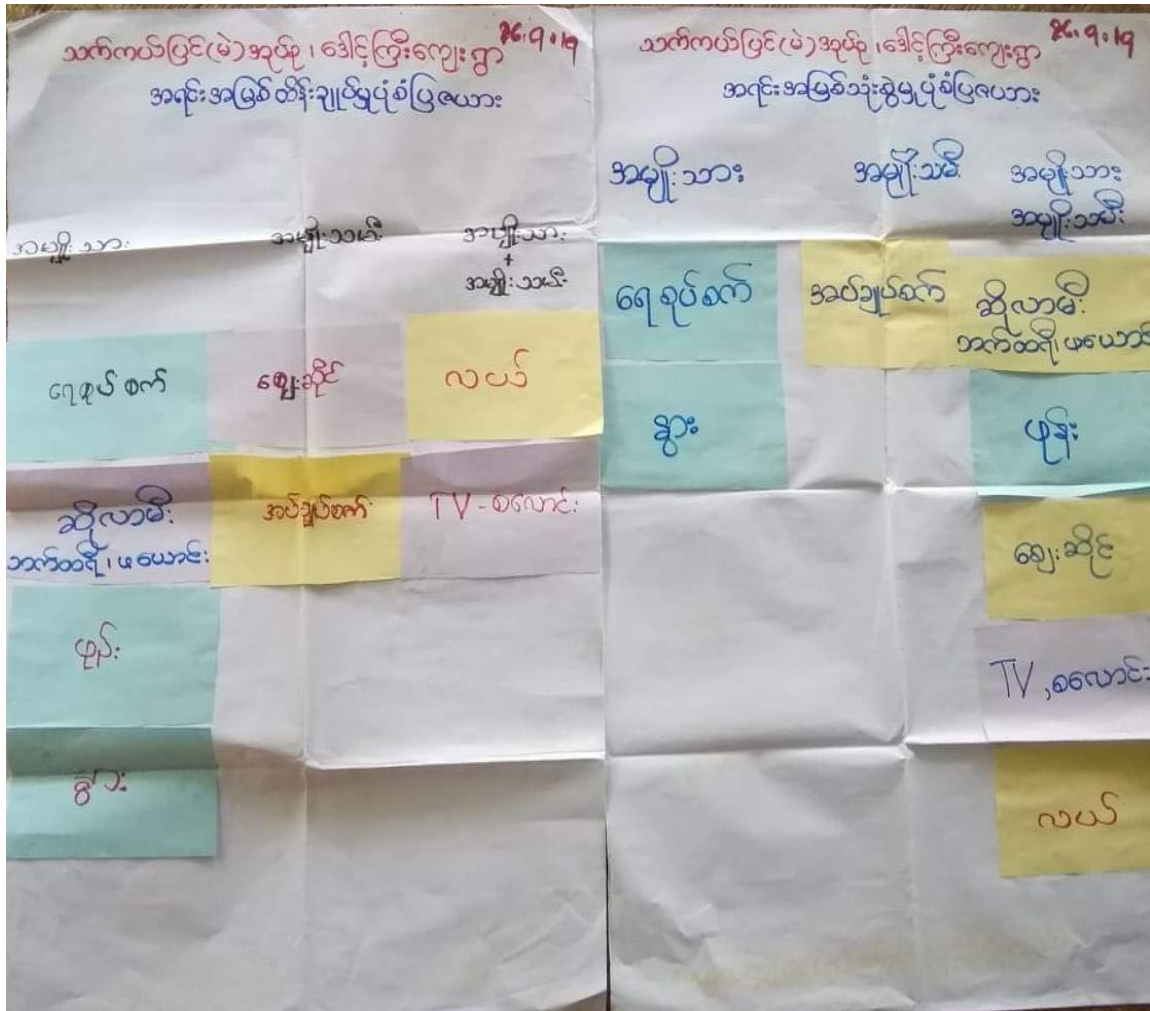 သက်ကယ်ပြင်(မဲ)အုပ်စု၊ဒေါင့်ကြီးကျေးရွာ 26.9.19
အရင်းအမြစ်ထိန်းချုပ်မှုပုံစံပြဇယား
အမျိုးသား အမျိုးသမီး အမျိုးသား
+
အမျိုးသမီး
ရေစုပ်စက် ဈေးဆိုင် လယ်
ဆိုလာမီး အပ်ချုပ်စက် TV-စလောင်း
ဘက်ထရီ၊ဖယောင်း
ဖုန်း
နွား
သက်ကယ်ပြင်(မဲ)အုပ်စု၊ဒေါင့်ကြီးကျေးရွာ 26.9.19
အရင်းအမြစ်သုံးစွဲမှုပုံစံပြဇယား
အမျိုးသား အမျိုးသမီး အမျိုးသား
အမျိုးသမီး
ရေစုပ်စက် အပ်ချုပ်စက် ဆိုလာမီး
ဘက်ထရီ၊ဖယောင်း
နွား ဖုန်း
ဈေးဆိုင်
TV,စလောင်း
လယ်